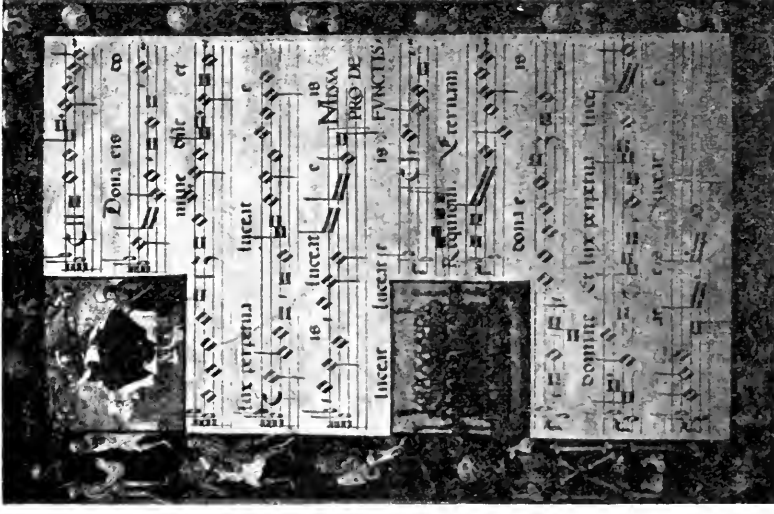 Dona eis do
mine et
lux perpetua luceat e
is luceat e is
MISSA
PRO DE
FVNCTIS
luceat luceat e is
Requiem eternam
dona e is
domine et lux perpetua luce
at e is luceat e